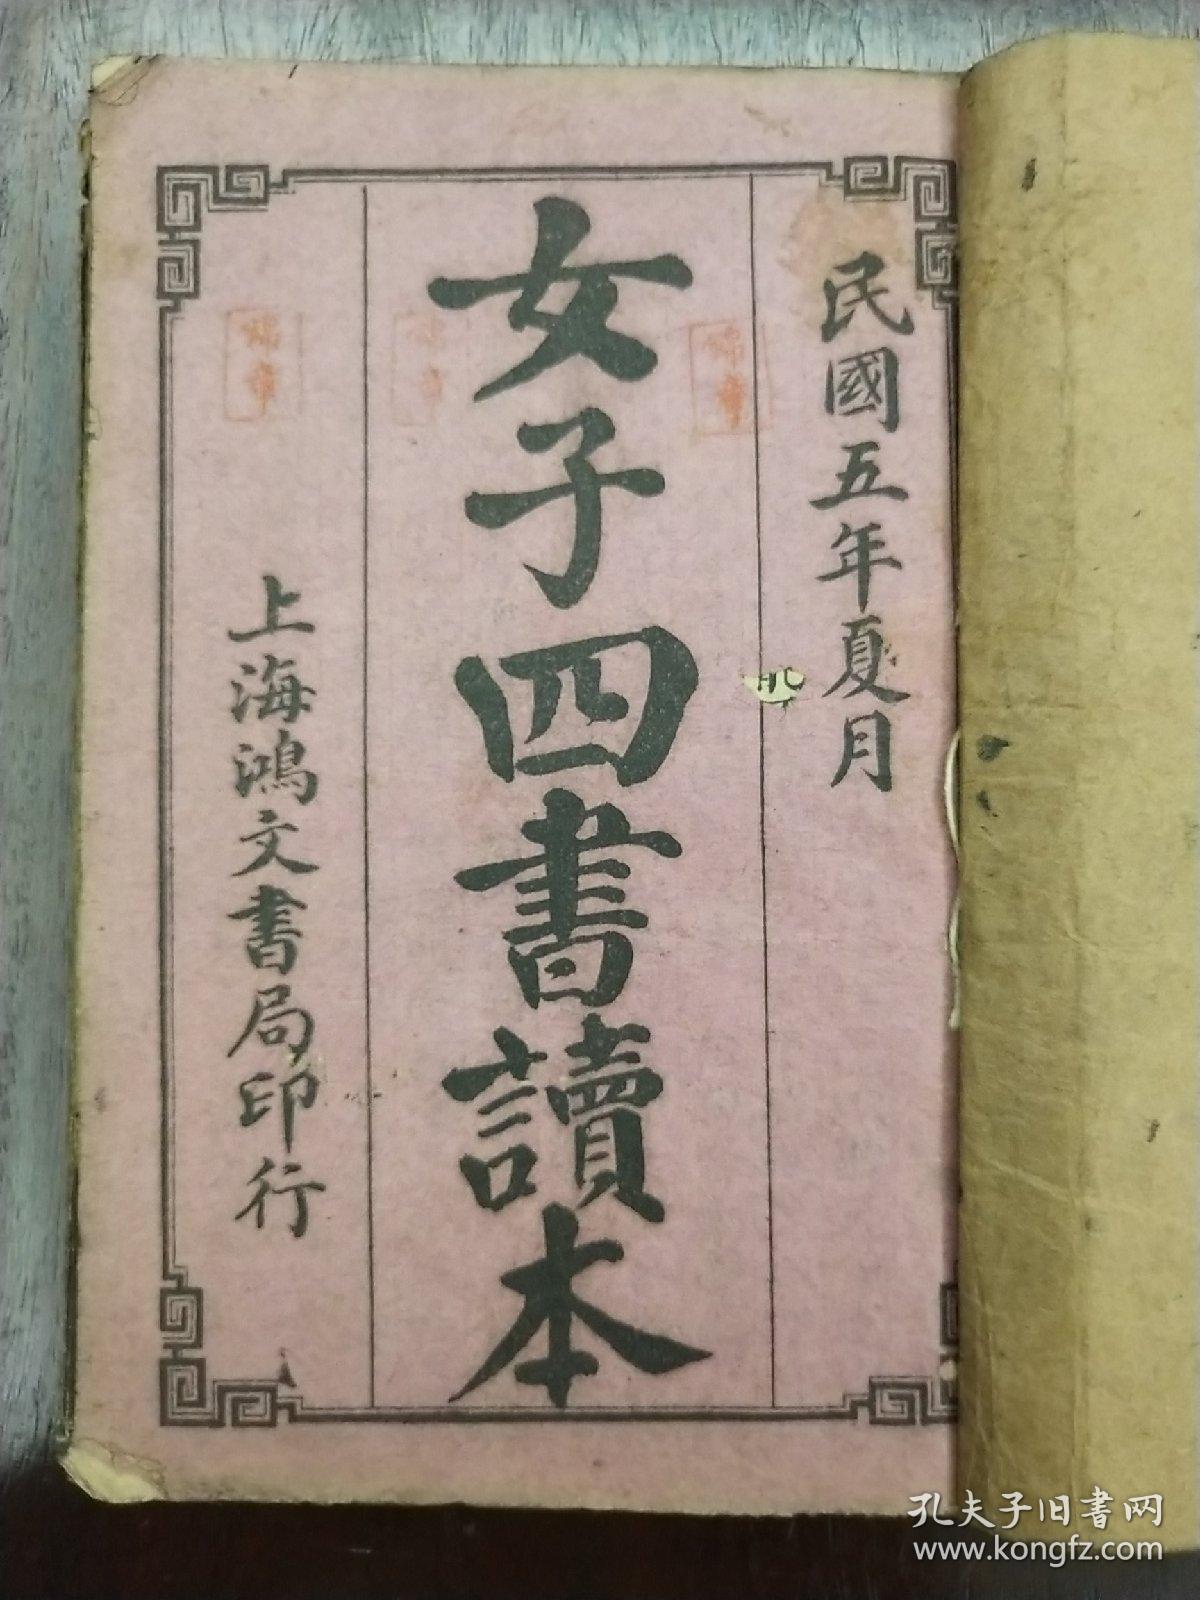 民國五年夏月
女子四書讀本
上海鴻文書局印行
孔夫子旧书网
www.kongfz.com